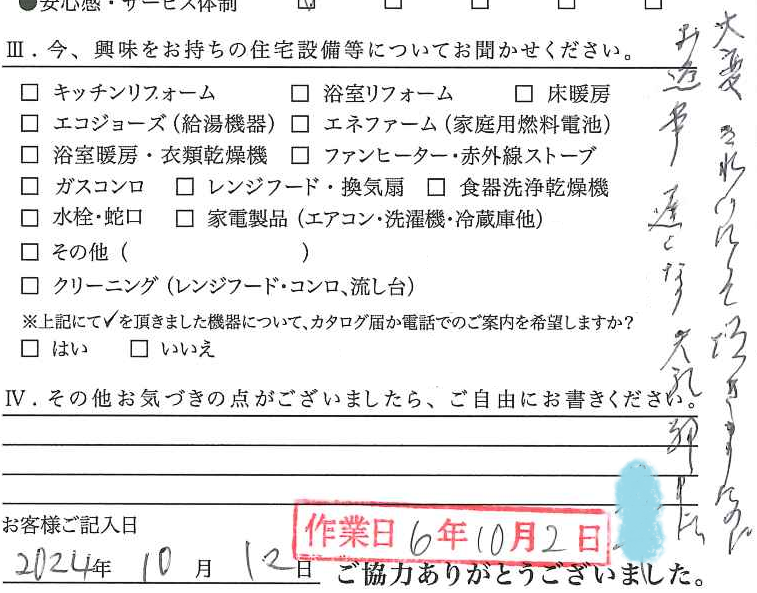 ●安心感・サービス体制 □ □ □ □ □
Ⅲ．今、興味をお持ちの住宅設備等についてお聞かせください。
□ キッチンリフォーム □ 浴室リフォーム □ 床暖房
□ エコジョーズ（給湯機器） □ エネファーム（家庭用燃料電池）
□ 浴室暖房・衣類乾燥機 □ ファンヒーター・赤外線ストーブ
□ ガスコンロ □ レンジフード・換気扇 □ 食器洗浄乾燥機
□ 水栓・蛇口 □ 家電製品（エアコン・洗濯機・冷蔵庫他）
□ その他（ ）
□ クリーニング（レンジフード・コンロ、流し台）
※上記にて✓を頂きました機器について、カタログ届か電話でのご案内を希望しますか？
□ はい □ いいえ
Ⅳ．その他お気づきの点がございましたら、ご自由にお書きください。
大変きれいにして頂きましたのに
お返事遅くなり失礼致しました
作業日 6年10月2日
お客様ご記入日
2024年 10月 12日
ご協力ありがとうございました。